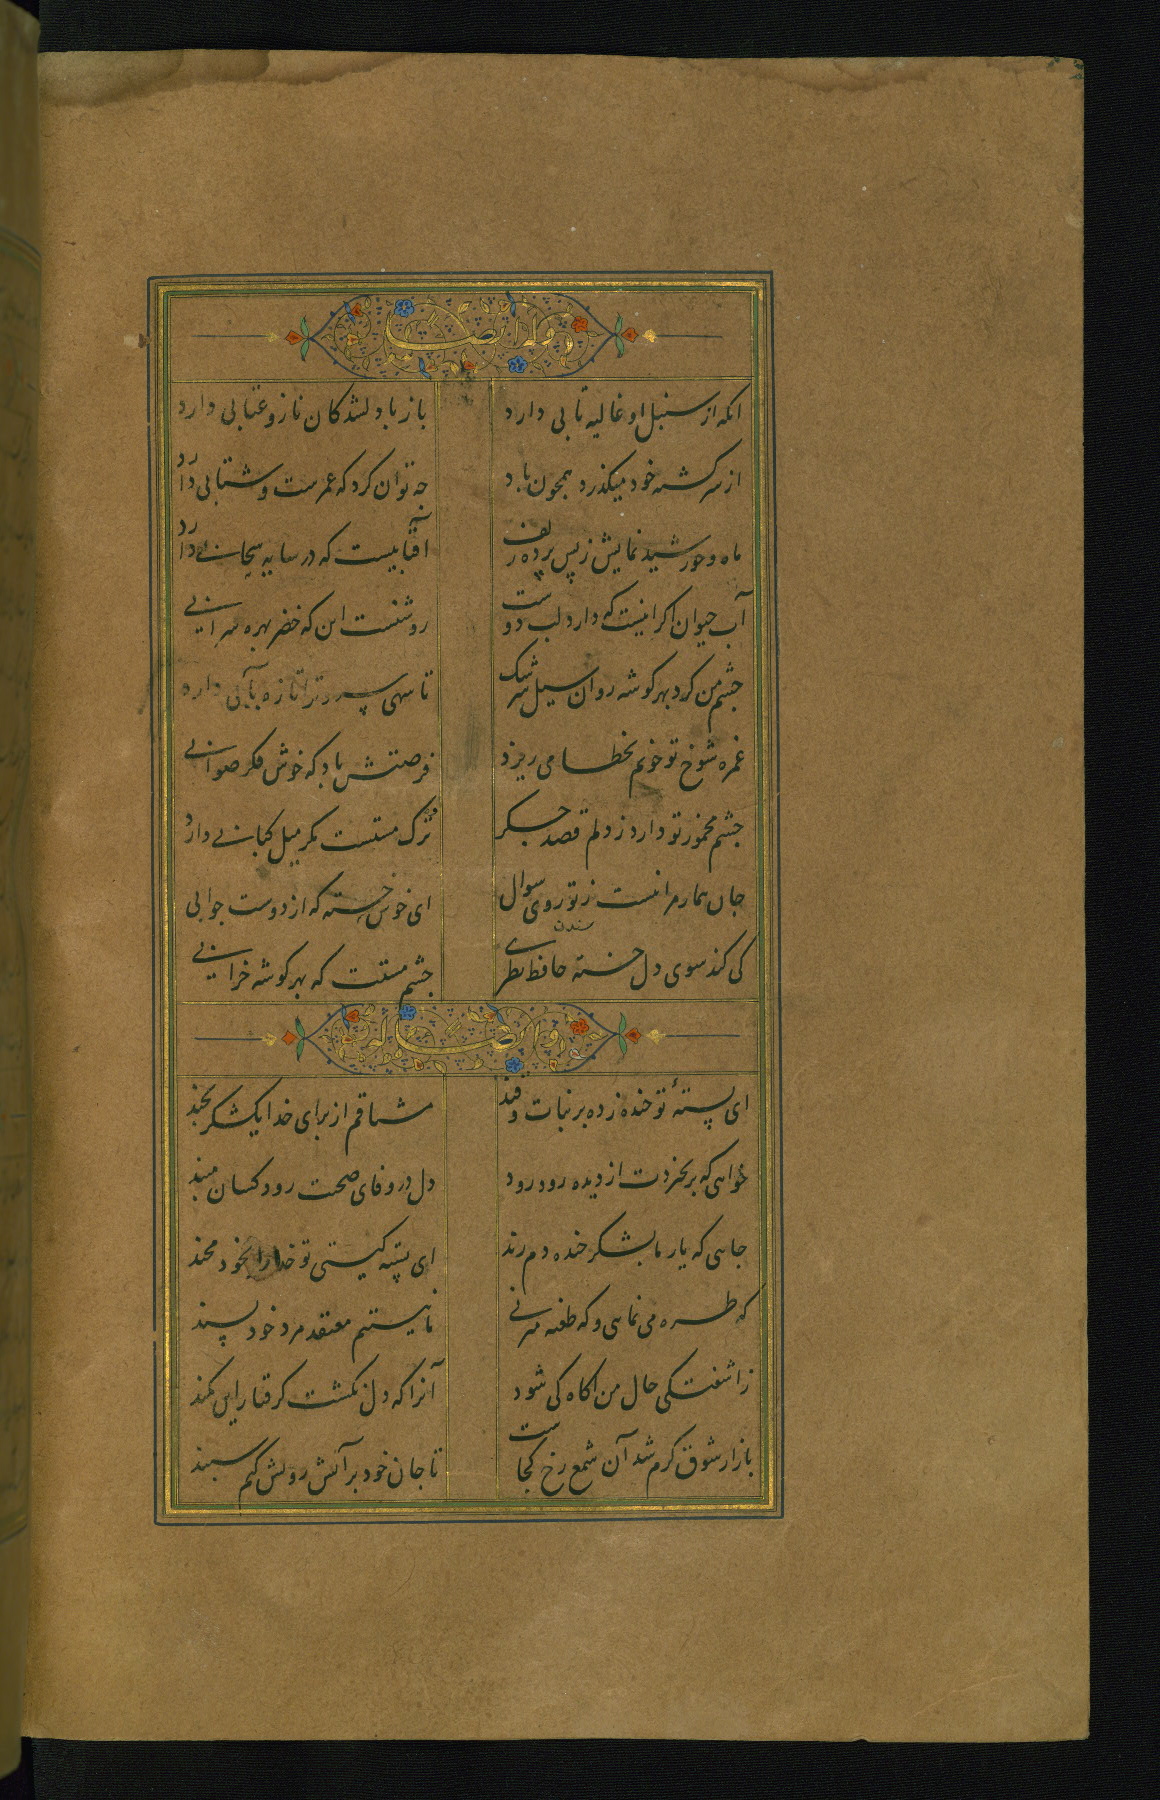 وله ایضا
انکه از سنبل او غالیه تابی دارد
باز با دلشدکان ناز و عتابی دارد
از سر کشته خود میکذرد همچون باد
چه توان کرد که عمرست و شتابی دارد
ماه و خورشید نمایش ز پس پرده زلف
آفتابیست که در سایه سحابی دارد
آب حیوان اکر اینست که دارد لب دوست
روشنست این که خضر بهره سرابی
چشم من کرد بهر کوشه روان سیل سرشک
تا سهی سرو ترا تازه بآبی دارد
غمزه شوخ تو خونم بخطا می ریزد
فرصتش باد که خوش فکر صوابی
چشم مخمور تو دارد ز دلم قصد جکر
ترک مستست مکر میل کبابی دارد
جان بیمار مرا نیست ز تو روی سوال
ای خوش خسته که از دوست جوابی
کی کند سوی دل خسته حافظ نظری
چشم مستت که بهر کوشه خرابی
وله ایضا
ای پستهٔ تو خنده زده بر نبات و قند
مشتاقم از برای خدا یک شکر بخند
خواهی که بر نخیزدت از دیده رود رود
دل در وفای صحبت رود کسان مبند
جایی که یار ما بشکر خنده دم زند
ای پسته کیستی تو خدا را بخود مخند
که طره می نمایی و که طعنه میزنی
ما نیستیم معتقد مرد خود پسند
ز اشفتکی حال من آکاه کی شود
آنرا که دل نکشت کرفتار این کمند
بازار شوق کرم شد آن شمع رخ کجاست
تا جان خود بر آتش رویش کنم سپند